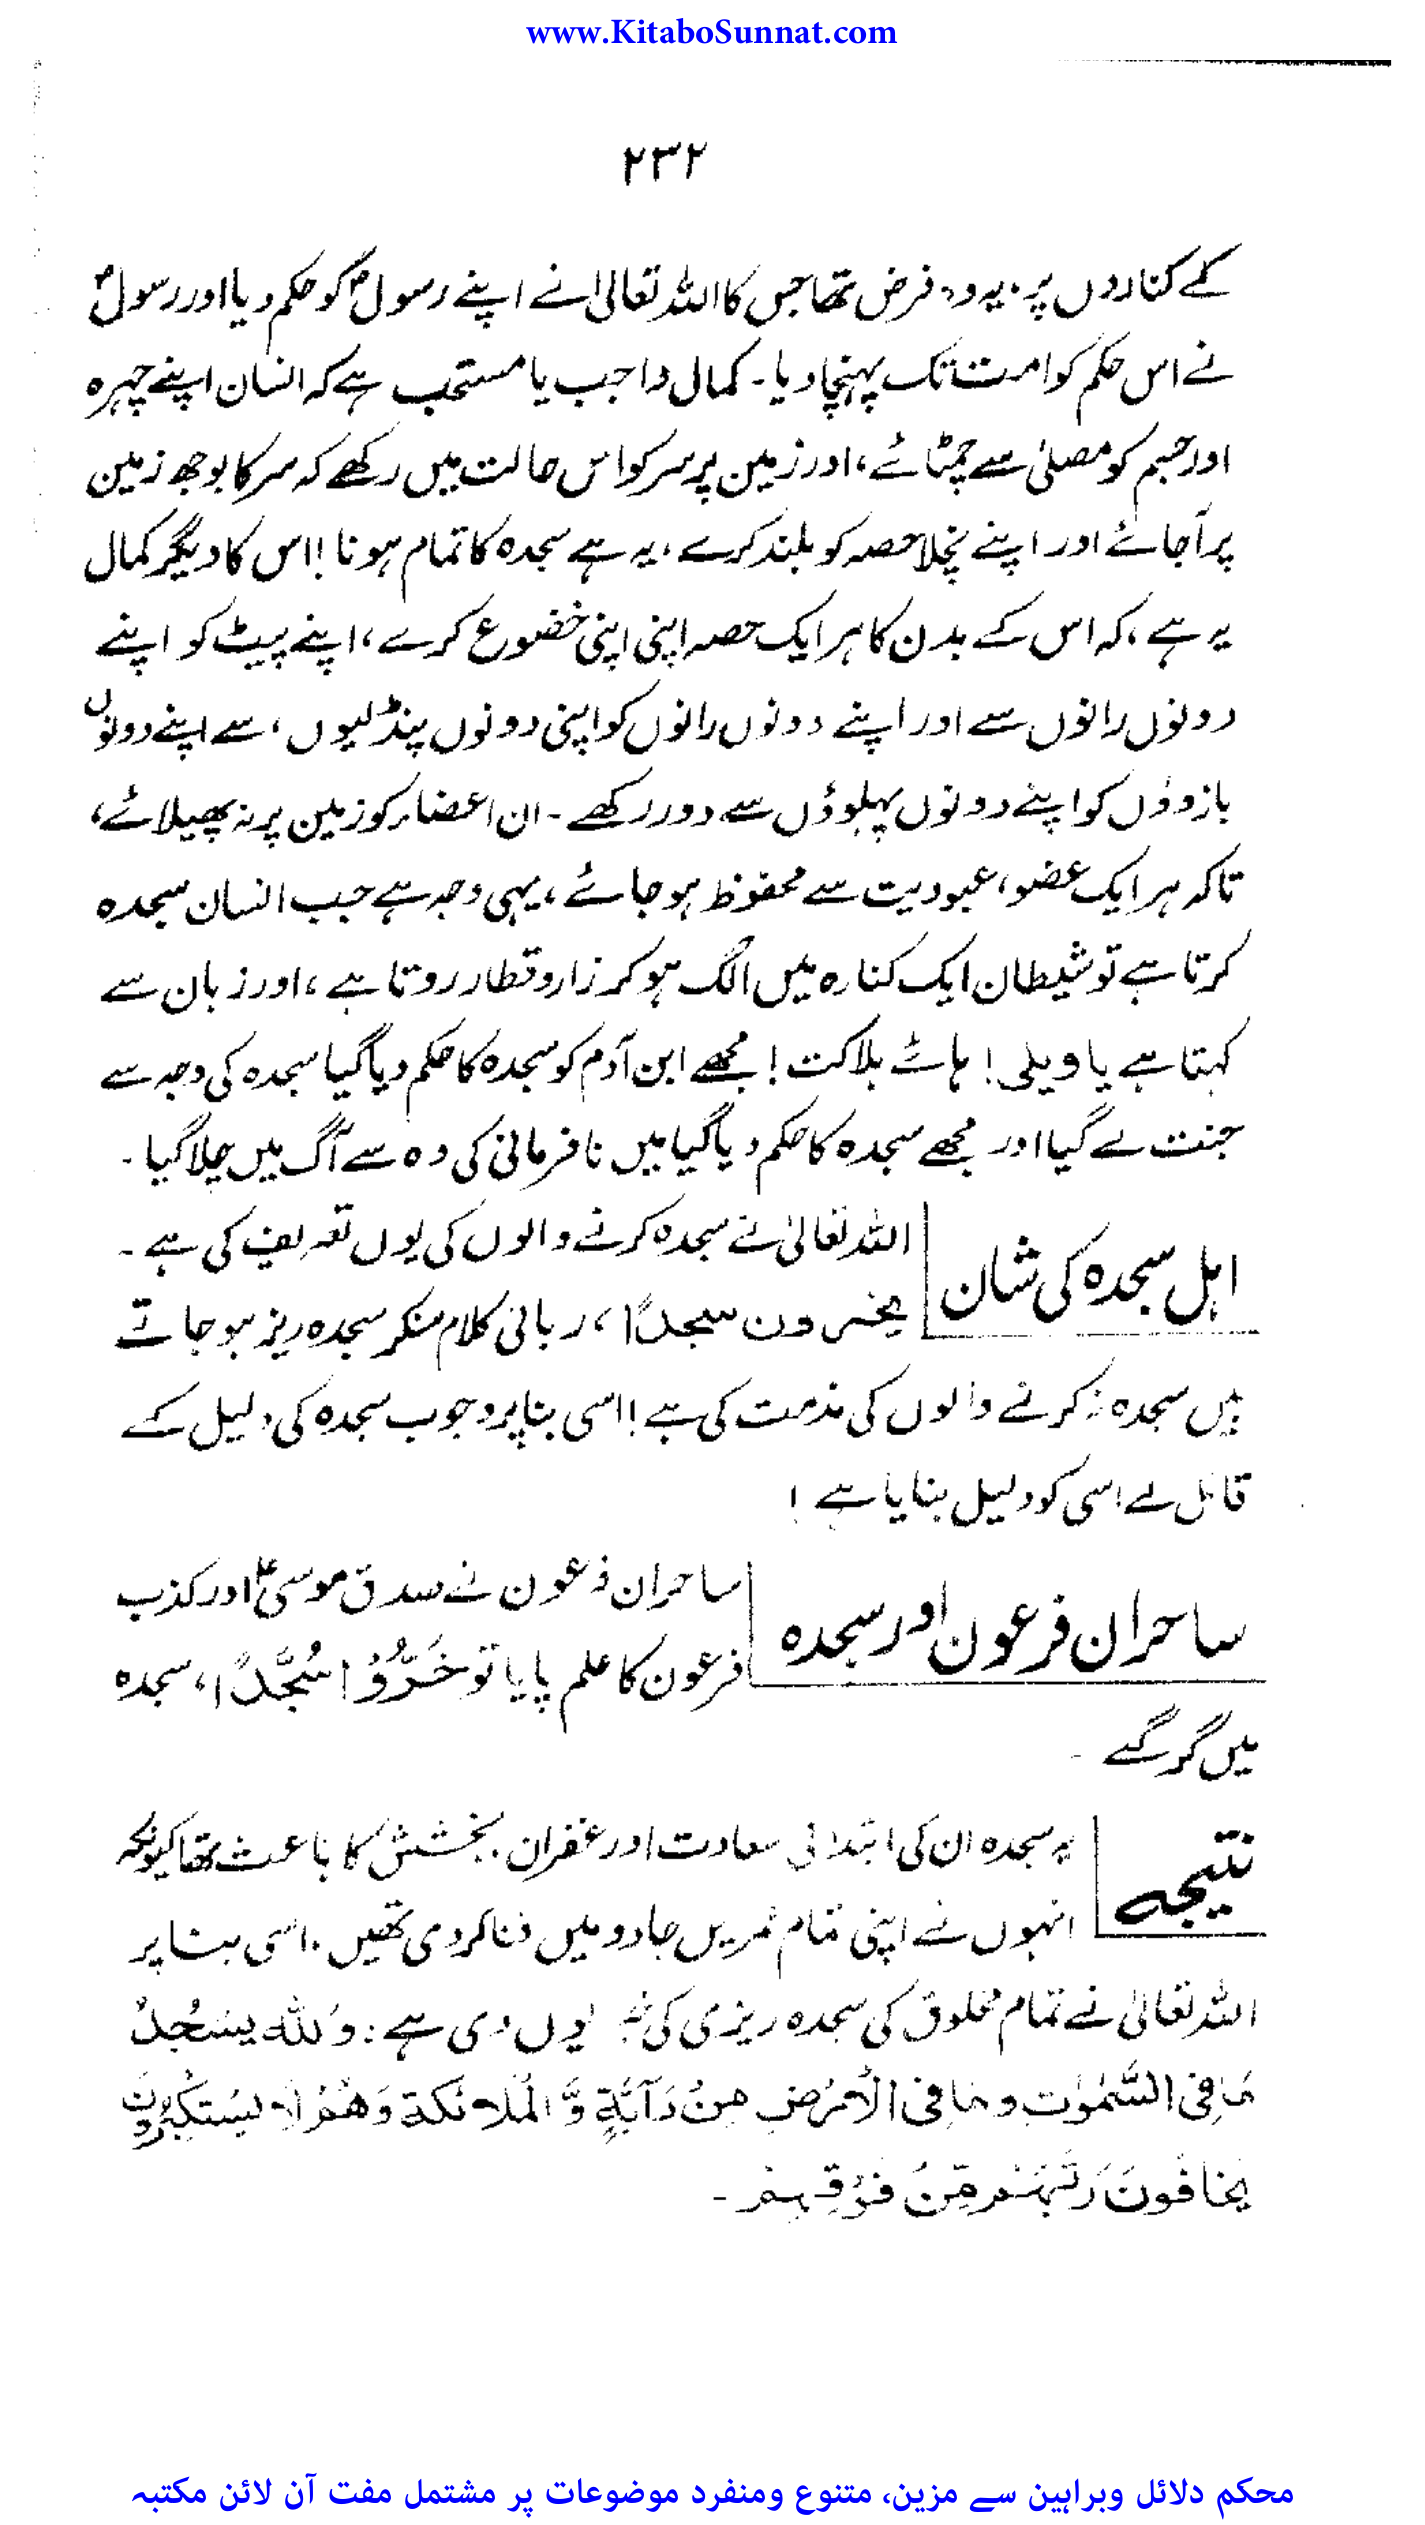 www.KitaboSunnat.com
۲۳۲
کے کناروں پر۔ یہ وہ فرض تھا جس کا اللہ تعالیٰ نے اپنے رسولؐ کو حکم دیا اور رسولؐ
نے اس حکم کو امت تک پہنچا دیا۔ کمال واجب یا مستحب ہے کہ انسان اپنے چہرہ
اور جسم کو مصلیٰ سے چمٹائے، اور زمین پر سر کو اس حالت میں رکھے کہ سر کا بوجھ زمین
پر آ جائے اور اپنے نچلا حصہ کو بلند کرے، یہ ہے سجدہ کا تمام ہونا! اس کا دیگر کمال
یہ ہے، کہ اس کے بدن کا ہر ایک حصہ اپنی اپنی خضوع کرے، اپنے پیٹ کو اپنے
دونوں رانوں سے اور اپنے دونوں رانوں کو اپنی دونوں پنڈلیوں، سے اپنے دونوں
بازوؤں کو اپنے دونوں پہلوؤں سے دور رکھے۔ ان اعضاء کو زمین پر نہ پھیلائے،
تاکہ ہر ایک عضو، عبودیت سے محفوظ ہو جائے، یہی وجہ ہے جب انسان سجدہ
کرتا ہے تو شیطان ایک کنارہ میں الگ ہو کر زار و قطار روتا ہے، اور زبان سے
کہتا ہے یا ویلی! ہائے ہلاکت! مجھے ابن آدم کو سجدہ کا حکم دیا گیا سجدہ کی وجہ سے
جنت لے گیا اور مجھے سجدہ کا حکم دیا گیا میں نافرمانی کی وہ سے آگ میں چلا گیا۔
اہل سجدہ کی شان
اللہ تعالیٰ نے سجدہ کرنے والوں کی یوں تعریف کی ہے۔
یخرون سجدًا، ربانی کلام سنکر سجدہ ریز ہو جاتے
ہیں سجدہ نہ کرنے والوں کی مذمت کی ہے! اسی بنا پر وجوب سجدہ کی دلیل کے
قائل نے اسی کو دلیل بنایا ہے!
ساحران فرعون اور سجدہ
ساحران فرعون نے صدق موسیٰؑ اور کذب
فرعون کا علم پایا تو خَرُّوْا سُجَّدًا، سجدہ
میں گر گئے ۔
نتیجہ
یہ سجدہ ان کی ابتدائی سعادت اور غفران۔ بخشش کا باعث تھا کیونکہ
انہوں نے اپنی تمام عمریں جادو میں فنا کر دی تھیں۔ اسی بنا پر
اللہ تعالیٰ نے تمام مخلوق کی سجدہ ریزی کی یوں دی ہے: وَلِلّٰہِ یَسْجُدُ
مَا فِی السَّمٰوٰتِ وَمَا فِی الْاَرْضِ مِنْ دَآبَّةٍ وَّالْمَلَائِکَةُ وَھُمْ لَا یَسْتَکْبِرُوْنَ
یَخَافُوْنَ رَبَّھُمْ مِّنْ فَوْقِہِمْ ۔
محکم دلائل وبراہین سے مزین، متنوع ومنفرد موضوعات پر مشتمل مفت آن لائن مکتبہ